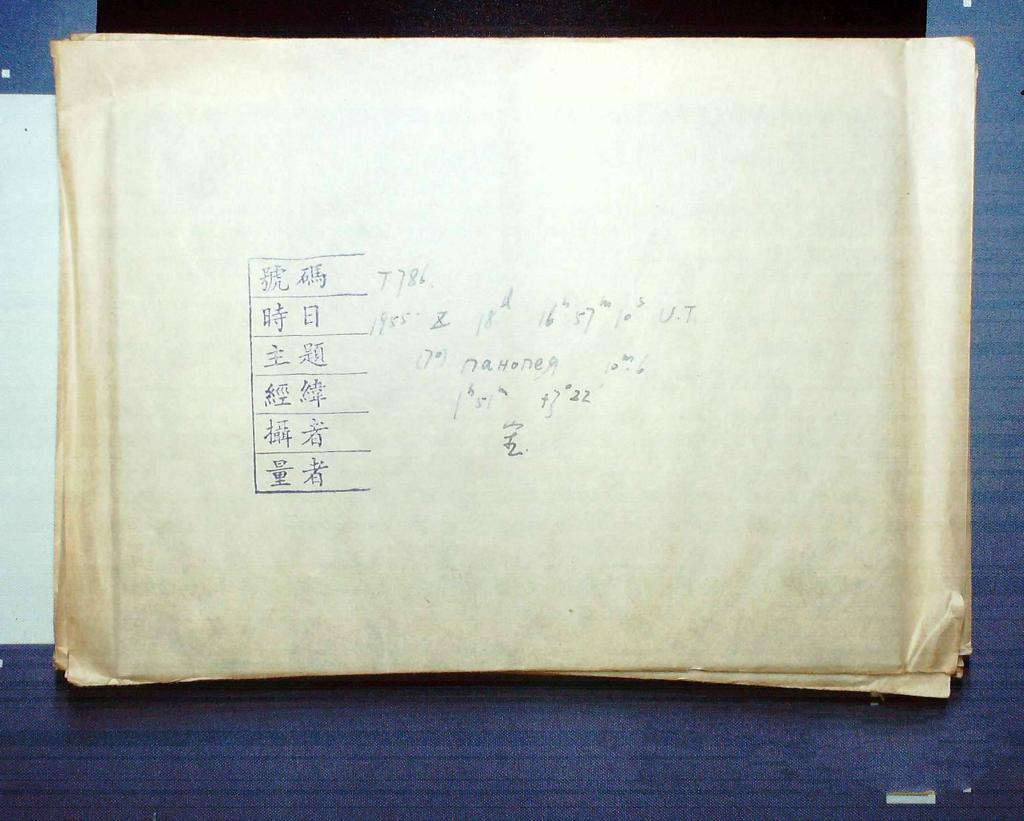 號碼 T786.
時日 1955 X 18ᵈ 16ʰ57ᵐ10ˢ U.T.
主題 (70) панопея 10ᵐ.6
經緯 1ʰ51ᵐ +3°22'
攝者
量者